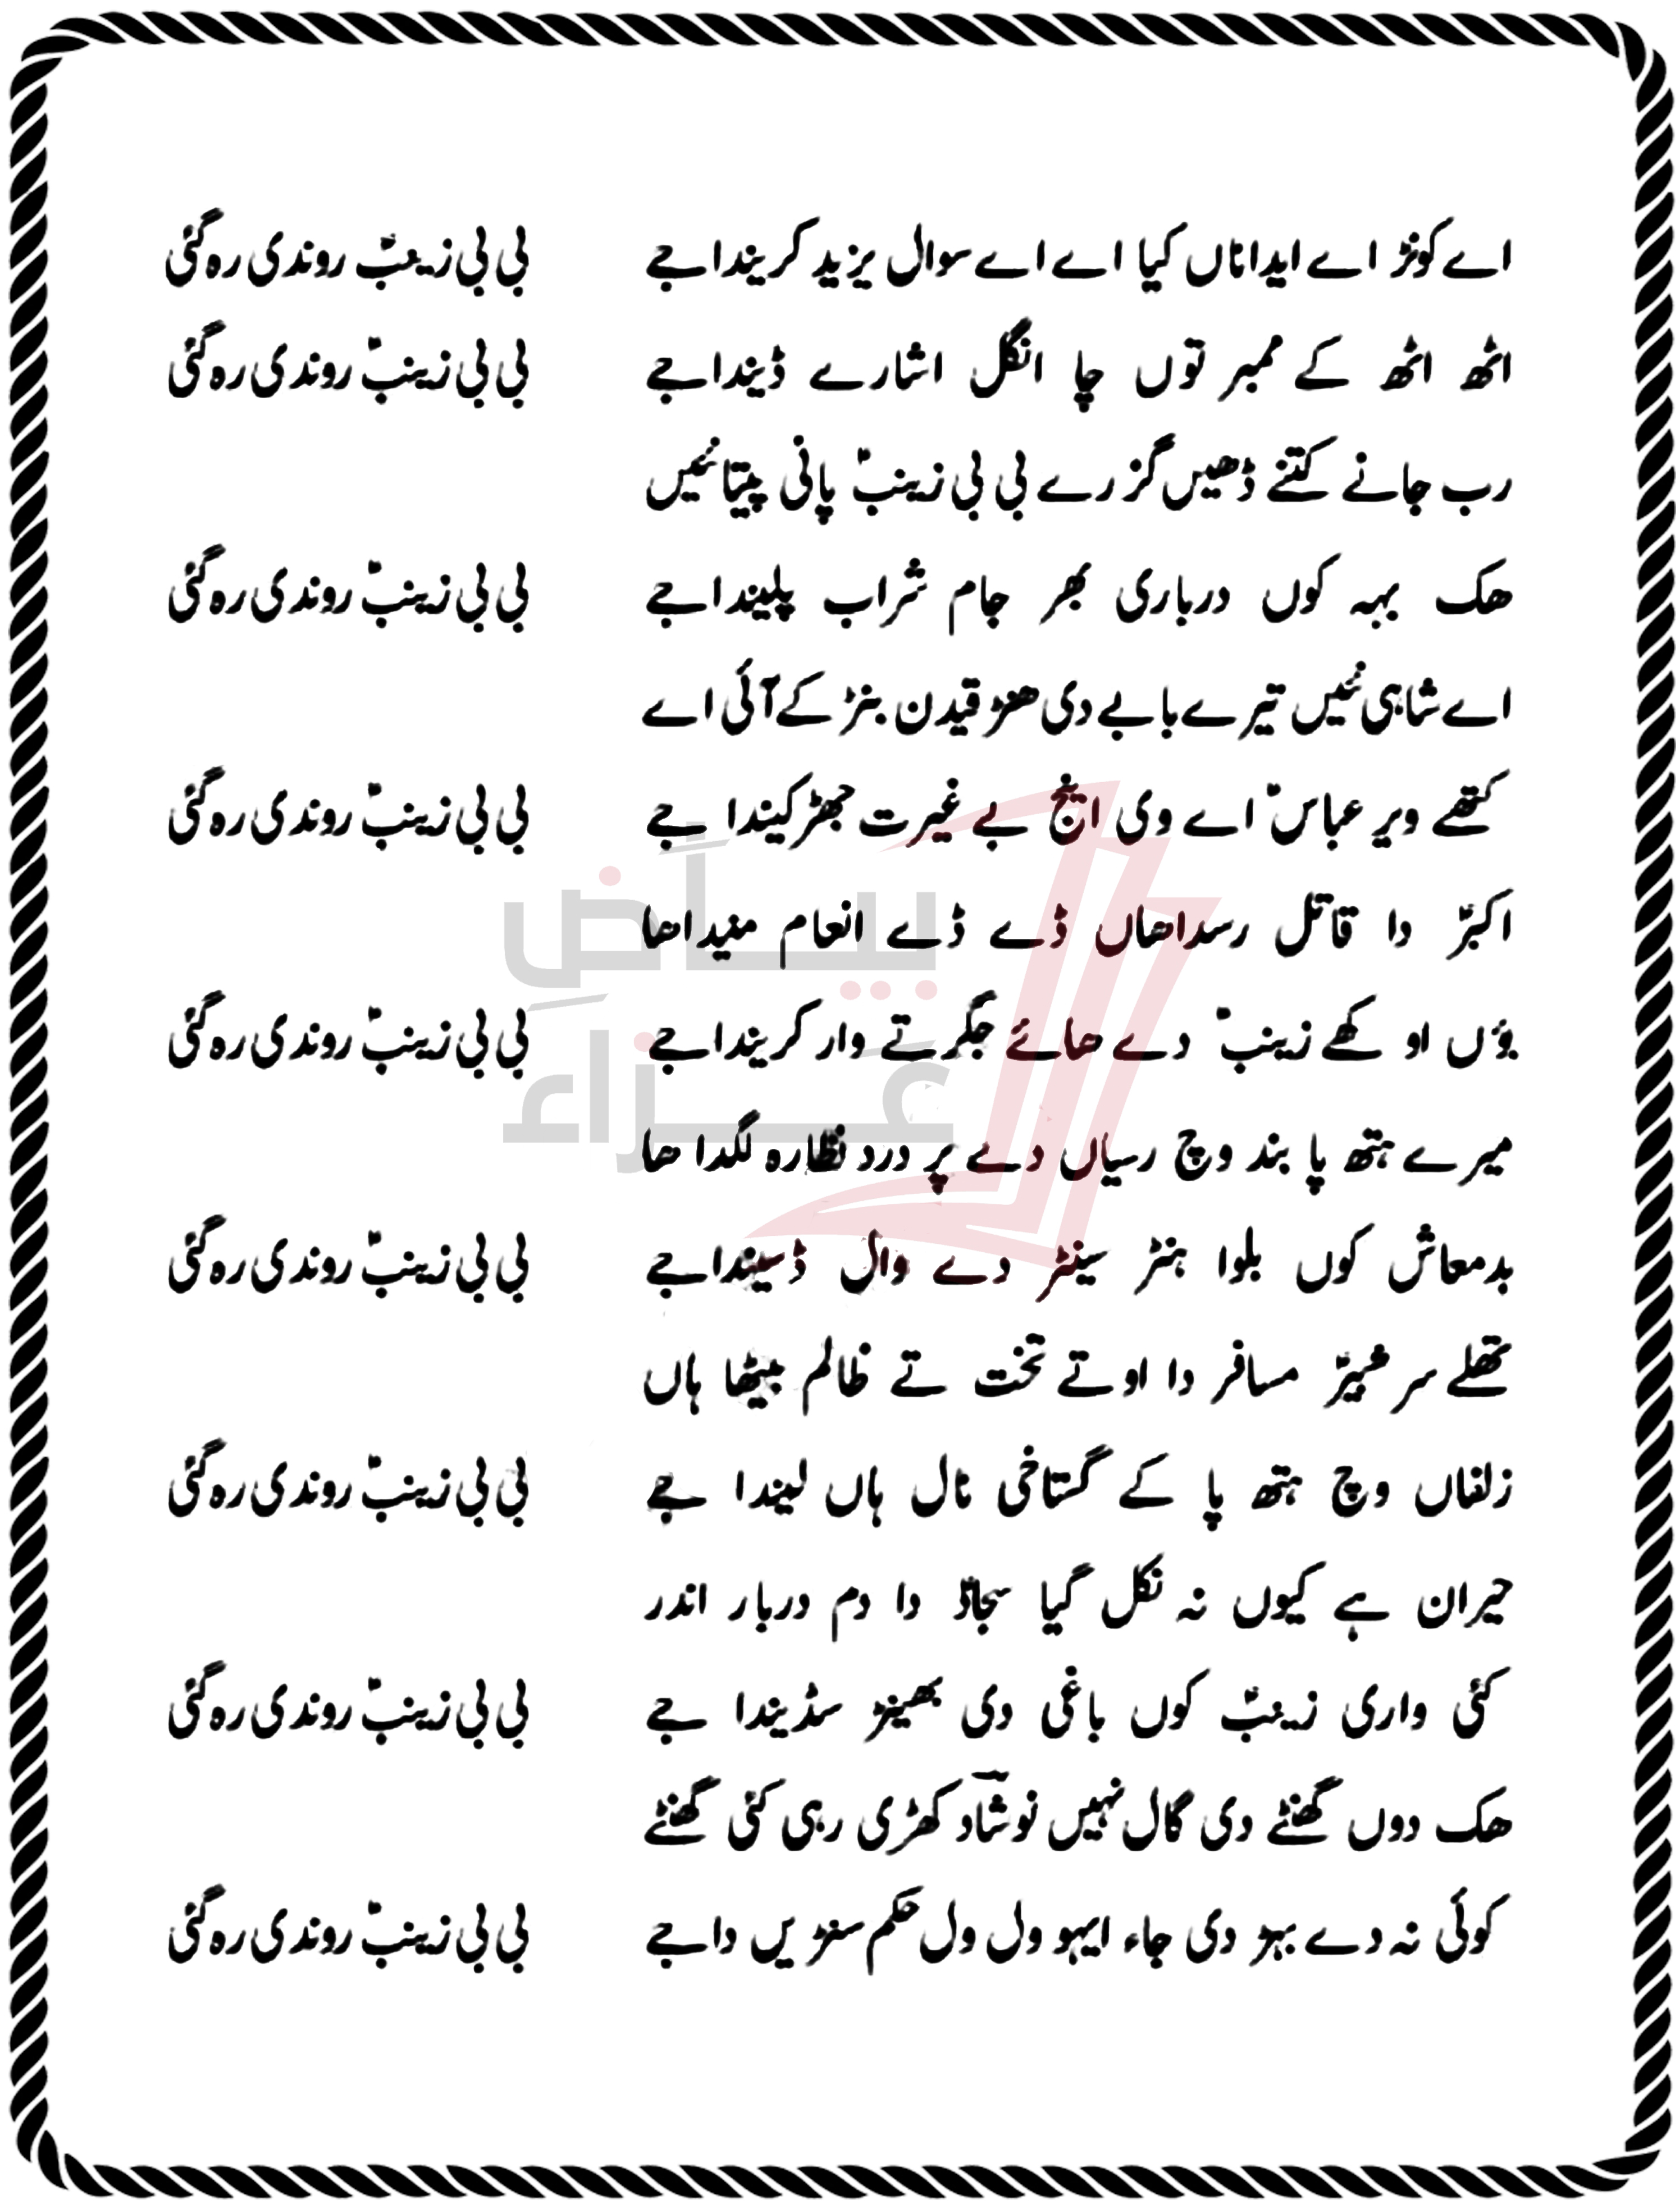 اے کونڑ اے ایدا ناں کیا اے اے سوال یزید کریندا جے بی بی زینبؑ روندی رہ گئی
اٹھ اٹھ کے ممبر توں چا انگل اشارے ڈیندا جے بی بی زینبؑ روندی رہ گئی
رب جانے کتنے ڈھیں گزرے بی بی زینبؑ پانی پیتا نئیں
ھک بہہ کوں درباری بھر جام شراب پلیندا جے بی بی زینبؑ روندی رہ گئی
اے شاہی نئیں تیرے بابے دی ھنڑ قیدن بنڑ کے آئی اے
کتھے ویر عباسؑ اے وی انج بے غیرت جھڑکیندا جے بی بی زینبؑ روندی رہ گئی
اکبرؑ دا قاتل رسدا ھاں ڈے ڈے انعام منیدا ھا
یوں او کھے زینبؑ دے ھائے جگر تے وار کریندا جے بی بی زینبؑ روندی رہ گئی
میرے ہتھ پا بند وچ رسیاں دے پر درد نظارہ لگدا ھا
بدمعاش کوں بلوا ہنڑ سینڑ دے وال ڈسیندا جے بی بی زینبؑ روندی رہ گئی
تھلے سر شبیرؑ مسافر دا اوتے تخت تے ظالم بیٹھا ہاں
زلفاں وچ ہتھ پا کے گستاخی نال ہاں لیندا جے بی بی زینبؑ روندی رہ گئی
حیران ہے کیوں نہ نکل گیا سجادؑ دا دم دربار اندر
کئی واری زینبؑ کوں باغی دی بھینڑ سڈیندا جے بی بی زینبؑ روندی رہ گئی
ھک دوں گھنٹے دی گال نہیں نوشاد کھڑی رہی کئی گھنٹے
کوئی نہ دے بہڑ دی جاء ایہو ول ول حکم سنڑیں دا جے بی بی زینبؑ روندی رہ گئی
بیاض
عزاء